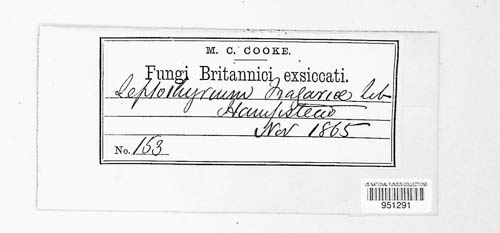 M. C. COOKE.
Fungi Britannici exsiccati.
Leptothyrium Fragariae Lib
Hampstead
Nov 1865
No. 153
US NATIONAL FUNGUS COLLECTIONS
951291